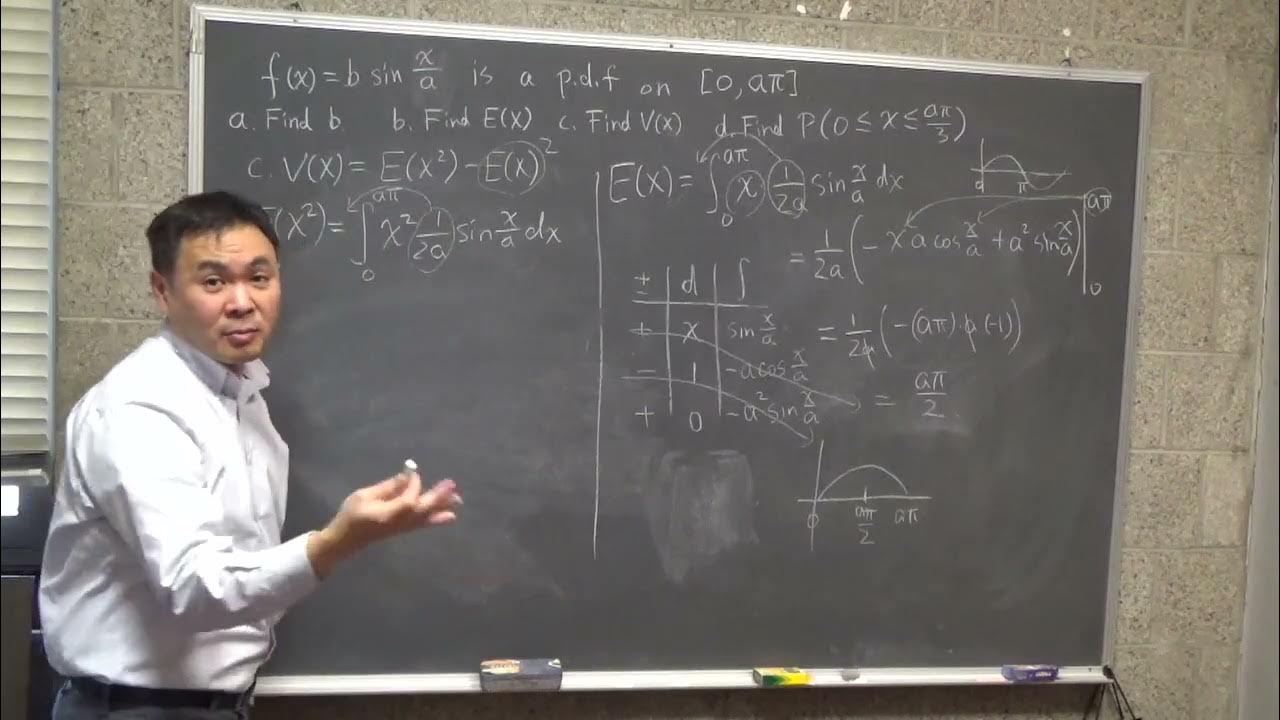 f(x) = b sin x/a is a p.d.f on [0, aπ]
a. Find b. b. Find E(X) c. Find V(X) d. Find P(0 ≤ x ≤ aπ/3)
c. V(X) = E(X²) - E(X)²
(X²) = ∫₀^aπ x² 1/2a sin x/a dx
E(X) = ∫₀^aπ x 1/2a sin x/a dx
0 π
= 1/2a (- x a cos x/a + a² sin x/a) |₀^aπ
± d ∫
+ x sin x/a
- 1 -a cos x/a
+ 0 -a² sin x/a
= 1/2a (-(aπ)·a (-1))
= aπ/2
0 aπ/2 aπ